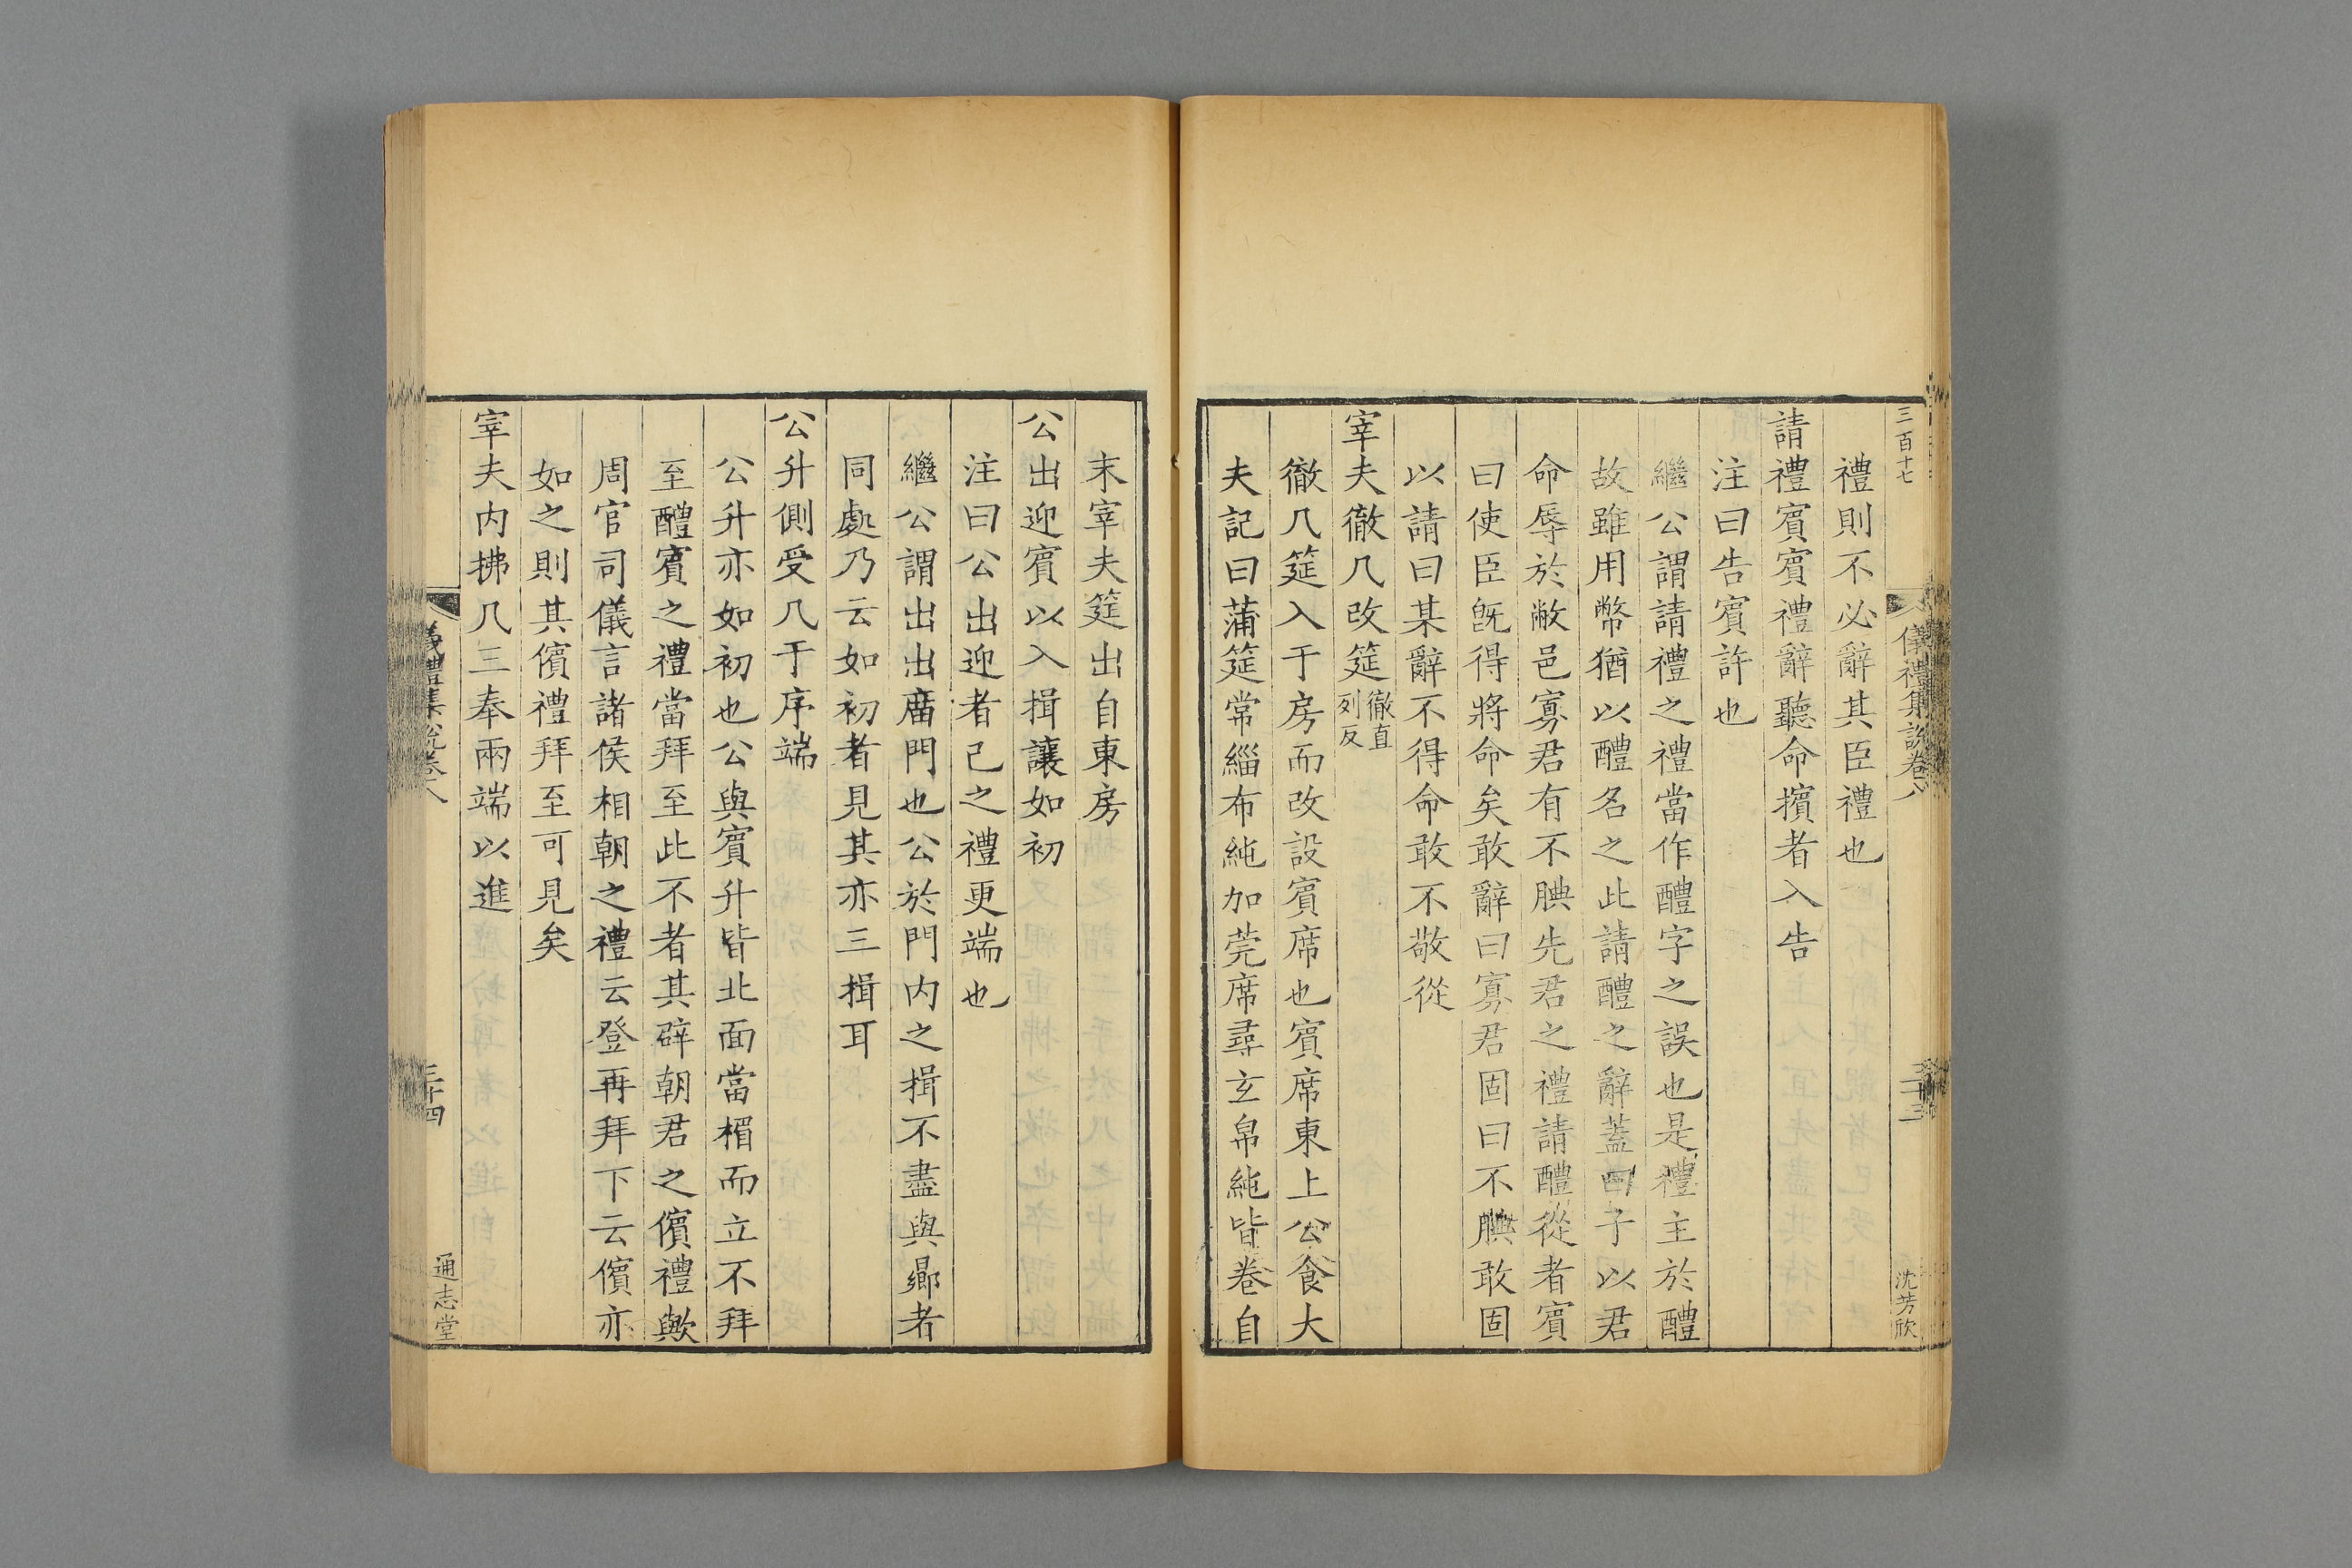 三百十七
儀禮集說卷八
三十三
沈芳欣
禮則不必辭其臣禮也
請禮賓賓禮辭聽命擯者入告
注曰告賓許也
繼公謂請禮之禮當作醴字之誤也是禮主於醴
故雖用幣猶以醴名之此請醴之辭蓋曰子以君
命辱於敝邑寡君有不腆先君之禮請醴從者賓
曰使臣旣得將命矣敢辭曰寡君固曰不腆敢固
以請曰某辭不得命敢不敬從
宰夫徹几改筵徹直列反
徹几筵入于房而改設賓席也賓席東上公食大
夫記曰蒲筵常緇布純加莞席尋玄帛純皆卷自
末宰夫筵出自東房
公出迎賓以入揖讓如初
注曰公出迎者己之禮更端也
繼公謂出出廟門也公於門內之揖不盡與鄕者
同處乃云如初者見其亦三揖耳
公升側受几于序端
公升亦如初也公與賓升皆北面當楣而立不拜
至醴賓之禮當拜至此不者其辟朝君之儐禮歟
周官司儀言諸侯相朝之禮云登再拜下云儐亦
如之則其儐禮拜至可見矣
宰夫內拂几三奉兩端以進
儀禮集說卷八
三十四
通志堂